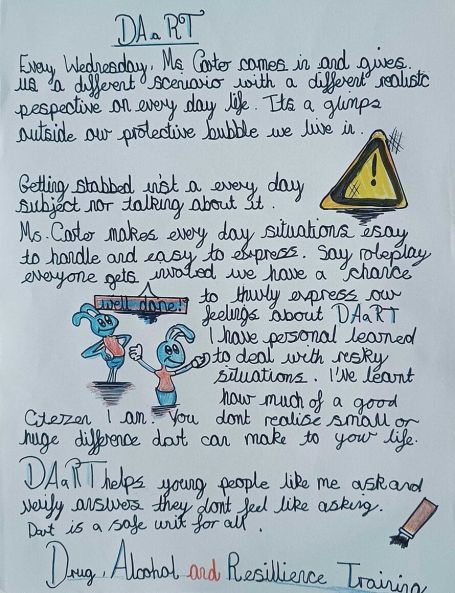 DAaRT
Every Wednesday, Ms Carter comes in and gives.
us a different scenario with a different realistc
pespective on every day life. Its a glimps
outside our protective bubble we live in.
Getting stabbed isn't a every day
subject nor talking about it.
Ms. Carter makes every day situations esay
to handle and easy to express. Say roleplay
everyone gets involed we have a chance
well done!
to thurly express our
feelings about DAaRT
I have personal learned
to deal with risky
situations. I've learnt
how much of a good
Citezen I am. You dont realise small or
huge difference dart can make to your life.
DAaRT helps young people like me ask and
verify answers they dont feel like asking.
Dart is a safe unit for all.
Drug, Alcohol and Resillience Training